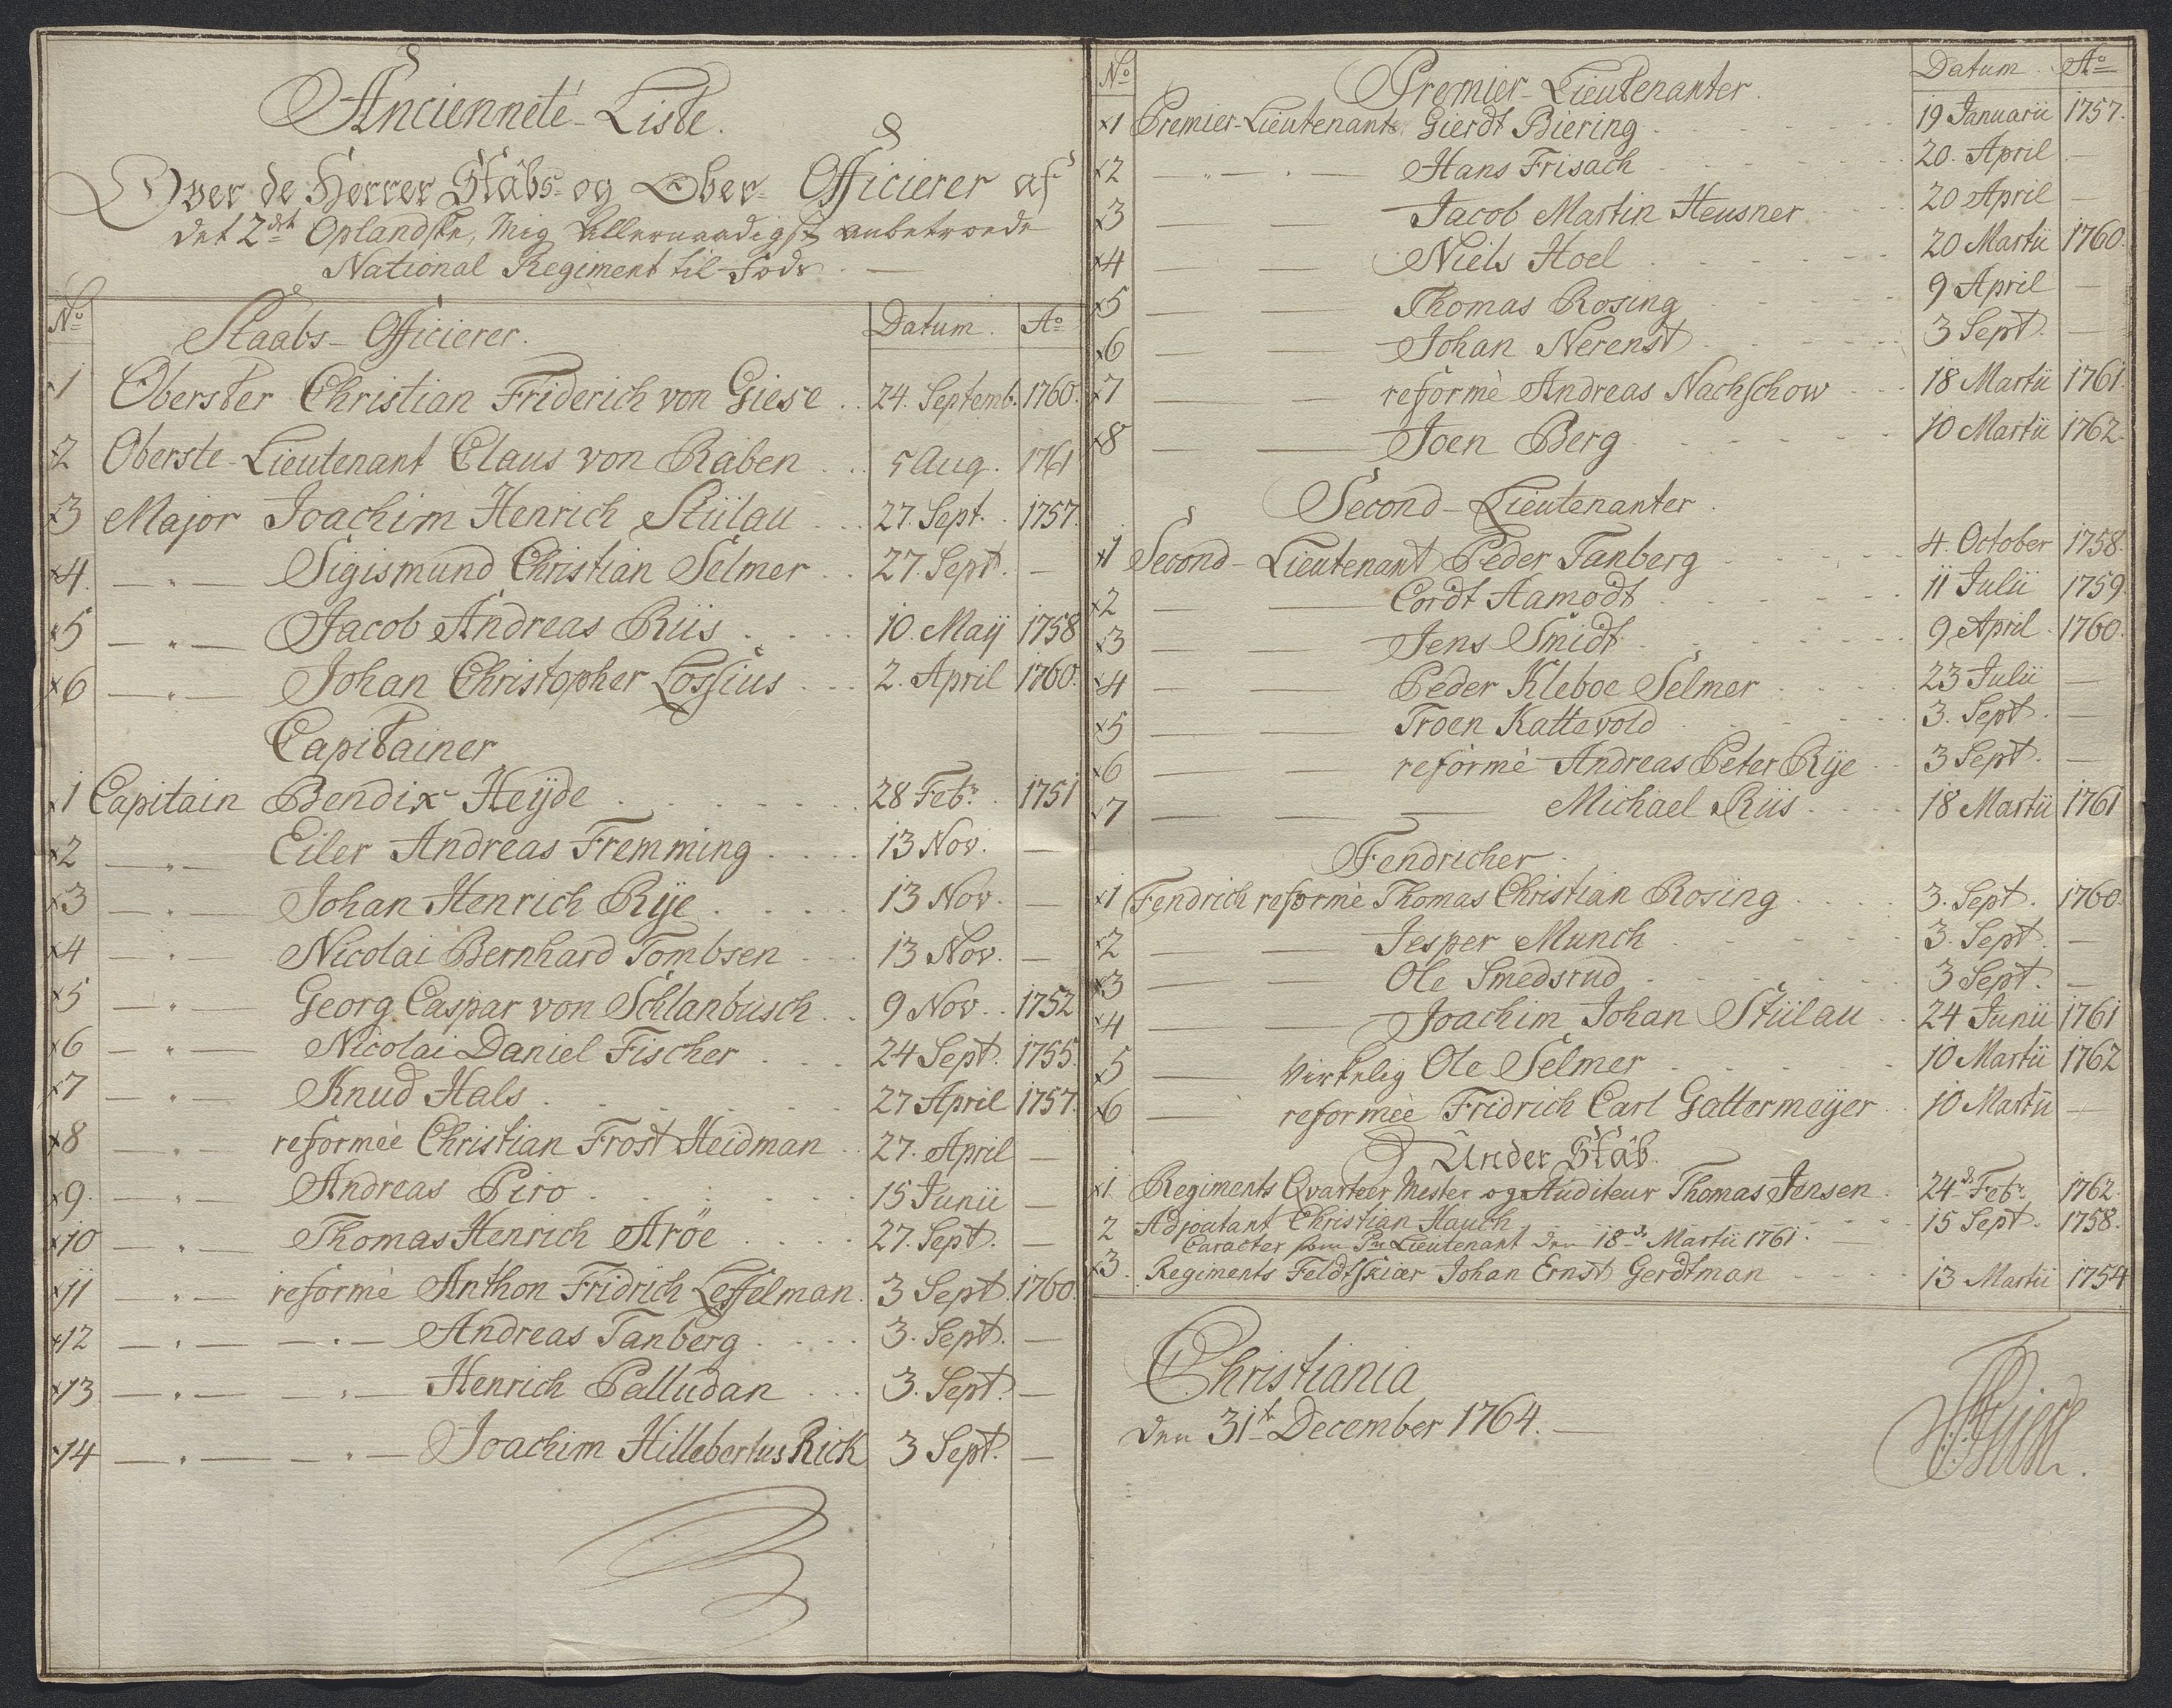 Ancienneté-Liste.
Over de Herrer Stabs- og Ober- Officierer af
det 2det Oplandske, mig allernaadigst anbetroede
National Regiment til Fods. —
No Staabs-Officierer. Datum. Ao
1 Oberster Christian Friderich von Giese .. 24. Septemb. 1760.
2 Oberste-Lieutenant Claus von Raben ... 5 Aug. 1761
3 Major Joachim Henrich Stülau ... 27. Sept. 1757.
4. — " — Sigismund Christian Selmer .. 27. Sept. —
5 — " — Jacob Andreas Riis .... 10. Maij 1758
6 — " — Johan Christopher Lossius ... 2. April 1760.
Capitainer
1 Capitain Bendix Heijde ....... 28 Febr. 1751
2 — " — Eiler Andreas Fremming .... 13 Nov. —
3 — " — Johan Henrich Rije .... 13 Nov. —
4 — " — Nicolai Bernhard Tombsen ... 13 Nov. —
5 — " — Georg Caspar von Schlanbusch .. 9 Nov. 1752
6 — " — Nicolai Daniel Fischer .... 24 Sept. 1755.
7 — " — Knud Hals ....... 27 April 1757.
8 — " — reformèe Christian Frost Heidman .. 27. April —
9. — " — Andreas Piro ....... 15 Junii —
10 — " — Thomas Henrich Aröe .... 27. Sept. —
11 — " — reformè Anthon Fridrich Leffelman. 3 Sept. 1760.
12 — " — — " — Andreas Tanberg .... 3. Sept. —
13 — " — — " — Henrich Palludan ... 3. Sept. —
14 — " — — " — Joachim Hillebertus Rick 3 Sept. —
No Premier-Lieutenanter. Datum. Ao
1 Premier-Lieutenant Gierdt Biering ...... 19 Januarii 1757.
2 — " — Hans Frisach ...... 20. April —
3 — — Jacob Martin Heusner ... 20 April —
4 — — Niels Hoel ...... 20 Martii 1760.
5 — — Thomas Rosing ..... 9 April —
6 — — Johan Nerenst ..... 3 Sept. —
7 — — reformè Andreas Nachschow ... 18 Martii 1761.
8 — — Joen Berg ...... 10 Martii 1762.
Second-Lieutenanter.
1 Second-Lieutenant Peder Tanberg ..... 4. October 1758.
2 — — Cordt Aamodt ...... 11 Julii 1759.
3 — — Jens Smidt ...... 9 April 1760.
4 — — Peder Kleboe Selmer .... 23 Julii —
5 — — Troen Kattevold ...... 3. Sept. —
6 — — reformè Andreas Peter Rije .. 3 Sept. —
7 — — — Michael Riis .... 18 Martii 1761
Fendricher.
1 Fendrich reformè Thomas Christian Rosing .... 3. Sept. 1760.
2 — — Jesper Munch ..... 3. Sept. —
3 — — Ole Smedsrud ...... 3 Sept. —
4 — — Joachim Johan Stülau .. 24 Junii 1761
5 — virkelig Ole Selmer ...... 10 Martii 1762
6 — reformèe Fridrich Carl Gattermeijer . 10 Martii —
Under Stab.
1 Regiments Qvarteer Mester og Auditeur Thomas Jensen . 24de Febr. 1762.
2 Adjoutant Christian Hauch ...... 15 Sept. 1758.
Caracter som Pr. Lieutenant den 18de Martii 1761. —
3. Regiments Feldtskiær Johan Ernst Gerdtman .... 13 Martii 1754
Christiania
den 31te December 1764. —